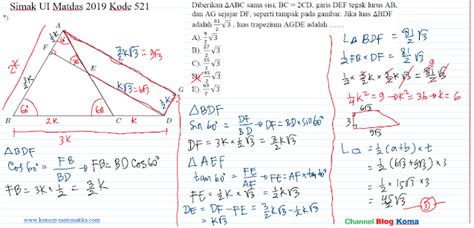 Simak UI Matdas 2019 Kode 521
Diberikan ΔABC sama sisi, BC = 2CD, garis DEF tegak lurus AB,
dan AG sejajar DF, seperti tampak pada gambar. Jika luas ΔBDF
adalah 81/2 √3, luas trapezium AGDE adalah........
A). 9/2 √3
B). 27/2 √3
D). 45/2 √3
E). 63/2 √3
A
F
E
G
B
C
D
2k
k
60°
60°
60°
3/2 k√3 = 9√3
k√3 = 6√3
ΔBDF
Cos 60° = FB/BD → FB = BD Cos 60°
FB = 3k × 1/2 = 3/2 k
ΔBDF
Sin 60° = DF/BD → DF = BD × sin 60°
DF = 3k × 1/2 √3 = 3/2 k√3
ΔAEF
tan 60° = FE/AF → FE = AF × tan 60°
FE = 1/2 k × √3 = 1/2 k√3
DE = DF - FE = 3/2 k√3 - 1/2 k√3
= k√3
L ΔBDF = 81/2 √3
1/2 FB × DF = 81/2 √3
1/2 × 3/2 k × 3/2 k√3 = 81/2 √3
1/4 k² = 9 → k² = 36 → k = 6
6√3
3
9√3
= 1/2 (a+b) × t
= 1/2 (6√3 + 9√3) × 3
= 1/2 × 15√3 × 3
= 45/2 √3 → D
www.konsep-matematika.com
Channel Blog Koma